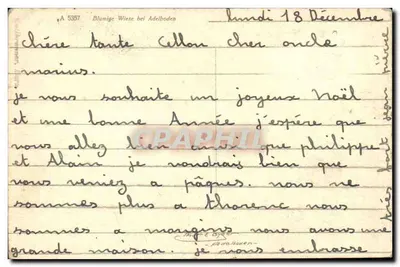 A 5397. Blumige Wiese bei Adelboden
lundi 18 Décembre
chère tante Cellou cher oncle
marius.
je vous souhaite un joyeux Noël
et une bonne Année j'espère que
vous allez bien ainsi que philippe
et Alain je voudrais bien que
vous veniez a pâques. nous ne
sommes plus a thorenc nous
sommes a mougins nous avons une
grande maison. je vous embrasse
très fort jean pierre
CPARAMA